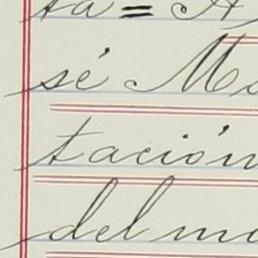 ta = A
sé Mo
tación
del mo